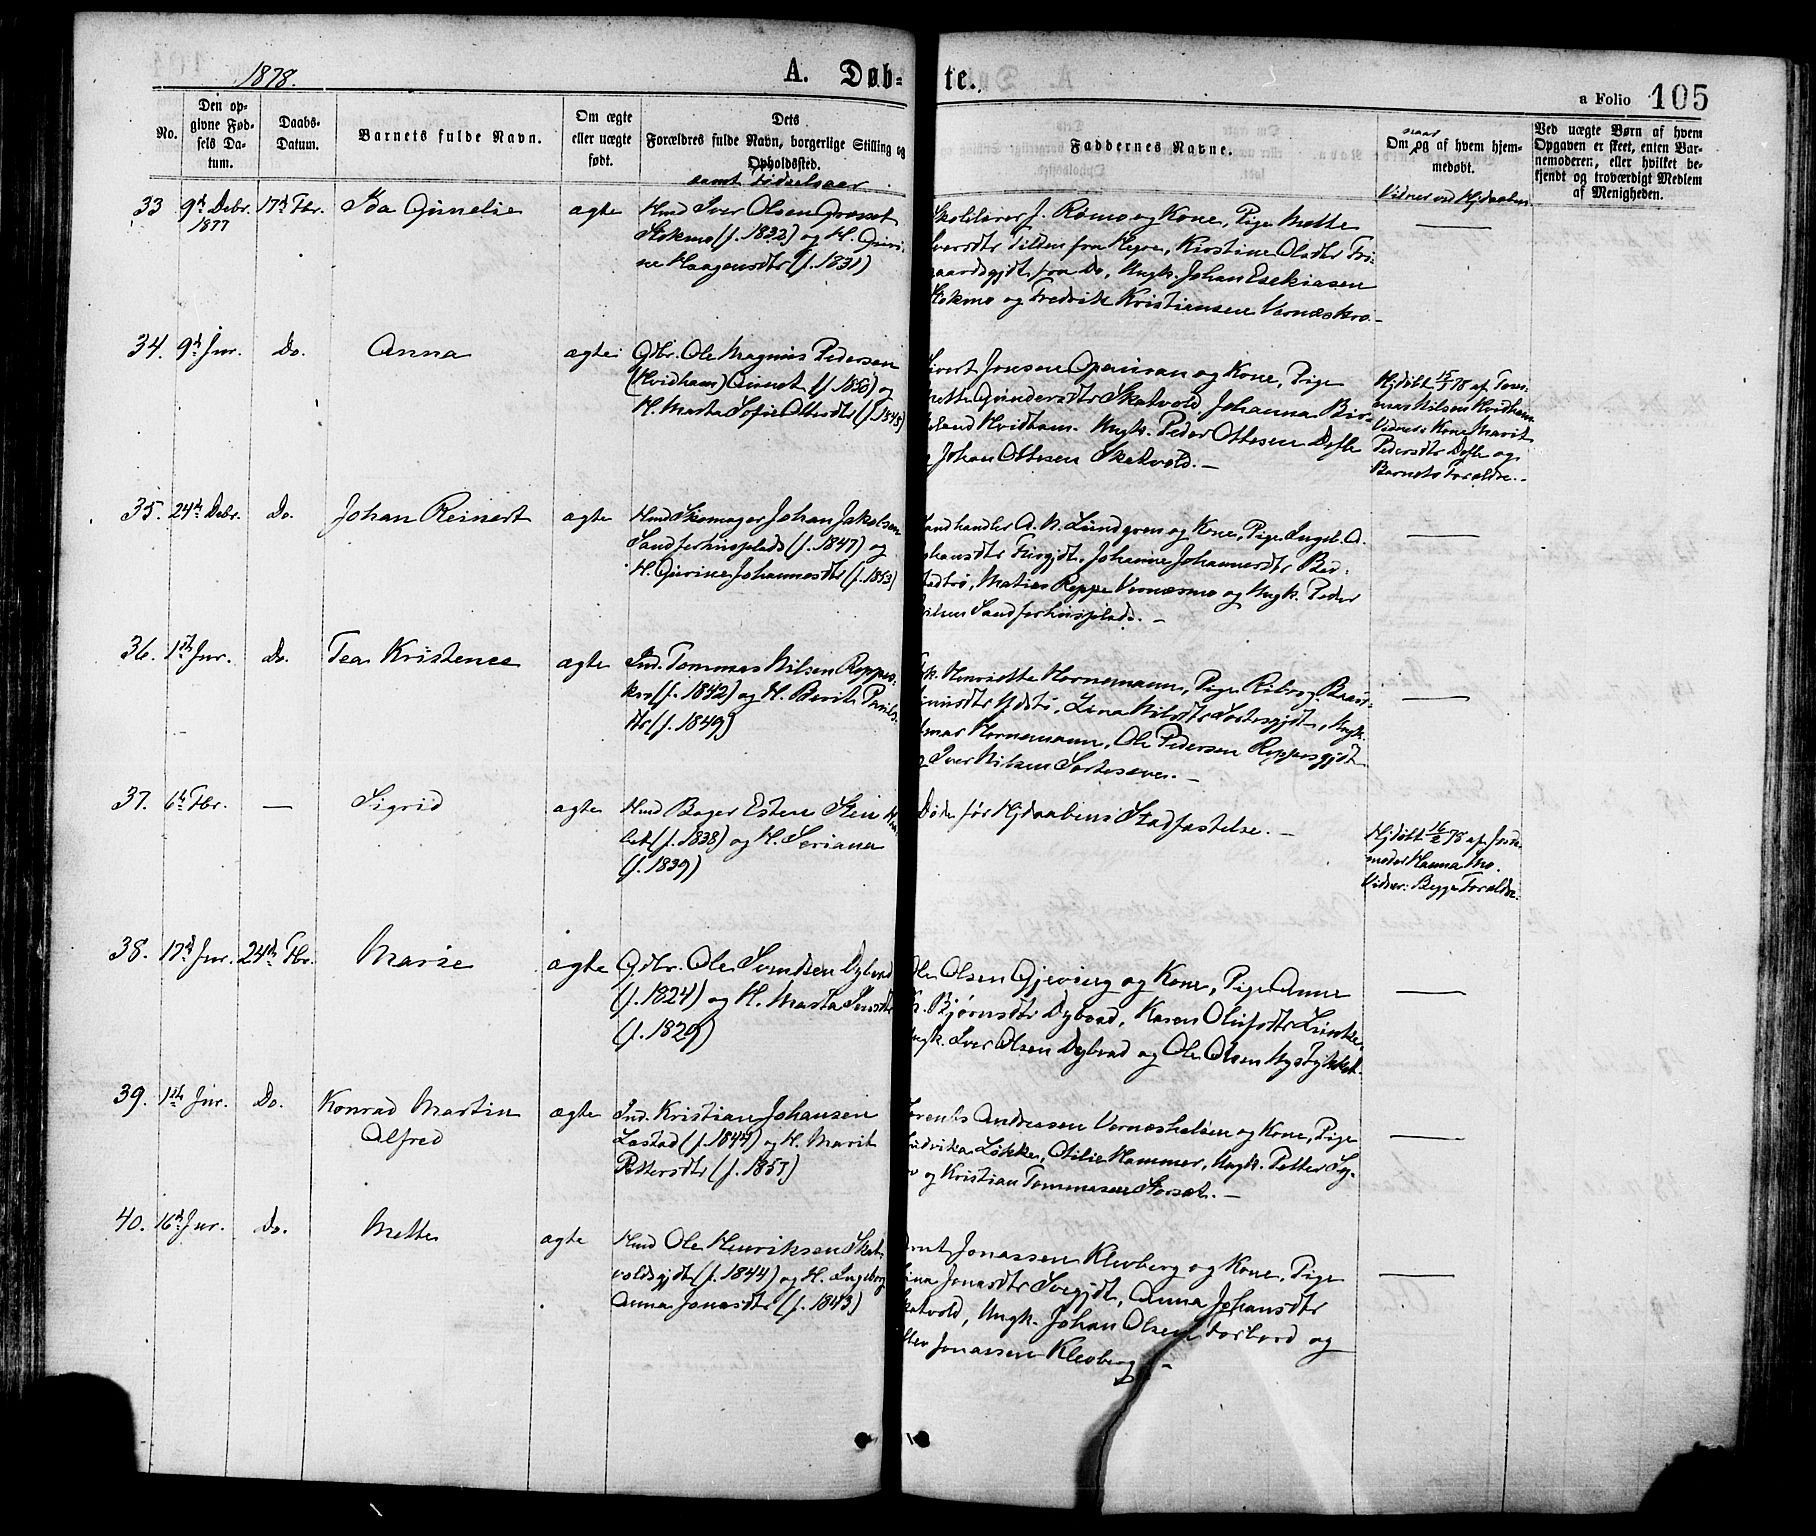 1878.
A. Døb-
te.
a Folio 105
No.
Den op-
givne Fød-
sels Da-
tum.
Daabs-
Datum.
Barnets fulde Navn.
Om ægte
eller uægte
født.
Dets
Forældres fulde Navn, borgerlige Stilling og
Opholdssted.
samt Fødselsaar
Faddernes Navne.
naar
Om og af hvem hjem-
medøbt.
Vidner ved Hjdaaben
Ved uægte Børn af hvem
Opgaven er skeet, enten Bar-
nemoderen, eller hvilket be-
kjendt og troværdigt Medlem
af Menigheden.
33 9d Debr. 1877 17d Fbr. Ida Gunelie ægte
Hmd Iver Olsen
Stokmo (f. 1832) og H.
ne Haagensdtr (f. 1831)
Skolelærer J. Rømo og Kone, Pige Mette
Iversdtr Tilden fra Hegre, Kirstine Olsdtr
fra Do, Ungk. Johan Esekiasen
Stokmo og Fredrik Kristiansen Værnæskro.
34. 9d Jnr. Do. Anna ægte
Gdbr. Ole Magnus Pedersen
(Hvidham) (f. 1856) og
H. Marta Sofie Ottesdtr (f. 1845)
Sivert Jonsen Openvran og Kone, Pige
Mette Gundersdtr Skatvold, Johanna
Hvidham. Ungk. Peder Ottesen Defle
Johan Ottesen Skatvold.
Hjdøbt 15/1 78 af Tom-
mas Nilsen Hvidham
Vidner: Kone Marit
Pedersdtr Defle og
Barnets Forældre.
35. 24d Debr. Do. Johan Reinert ægte
Hmd Skomager Johan Jakobsen
Sandferhusplads (f. 1847) og
H. Gurine Johannesdtr (f. 1853)
Landhandler A. N. Lundgren og Kone, Pige Ingeb. A.
Johanne Johannesdtr
Matias Reppe Værnæsmo og Ungk. Peder
Nilsen Sandferhusplads.
36. 1st Jnr. Do. Tea Kristence ægte
Ind. Tommas Nilsen Reppes-
kro (f. 1842) og H. Berit Pauls-
dtr (f. 1849)
Henriette Hornemann, Pige
Lina Nilsdtr Ungk.
Hornemann, Ole Pedersen Reppesgjdt
Iver Nilsen
37. 6d Fbr. — Sigrid ægte
Hmd Bager Esten Sten
(f. 1838) og H. Seriana
(f. 1839)
Døde før Hjdaabens Stadfæstelse.
Hjdøbt 16/2 78 af Jord-
moder Hanna Mo.
Vidner: Begge Forældre.
38. 17d Jnr. 24d Fbr. Marie ægte
Gdbr. Ole Svendsen Dybvad
(f. 1824) og H. Marta
(f. 1829)
Ole Olsen Gjeving og Kone, Pige Anne
Bjørnsdtr Dybvad, Karen Olufsdtr
Ungk. Iver Olsen Dybvad og Ole Olsen Nystykket.
39. 1st Jnr. Do. Konrad Martin
Alfred ægte
Ind. Kristian Johansen
Lastad (f. 1844) og H. Marit
Pettersdtr (f. 1851)
Lorents Andreasen Værneshalsen og Kone, Pige
Ludvika Løkke, Otilie Hammer, Ungk. Petter
og Kristian Tommasen Storsæt.
40. 16d Jnr. Do. Mette ægte
Hmd Ole Henriksen Skat-
voldsgjdt (f. 1844) og H. Ingeborg
Anna Jonasdtr (f. 1843)
Jonassen Klevberg og Kone, Pige
Jonasdtr Anna Johansdtr
Skatvold, Ungk. Johan Olsen Forbord og
Jonassen Klevberg.